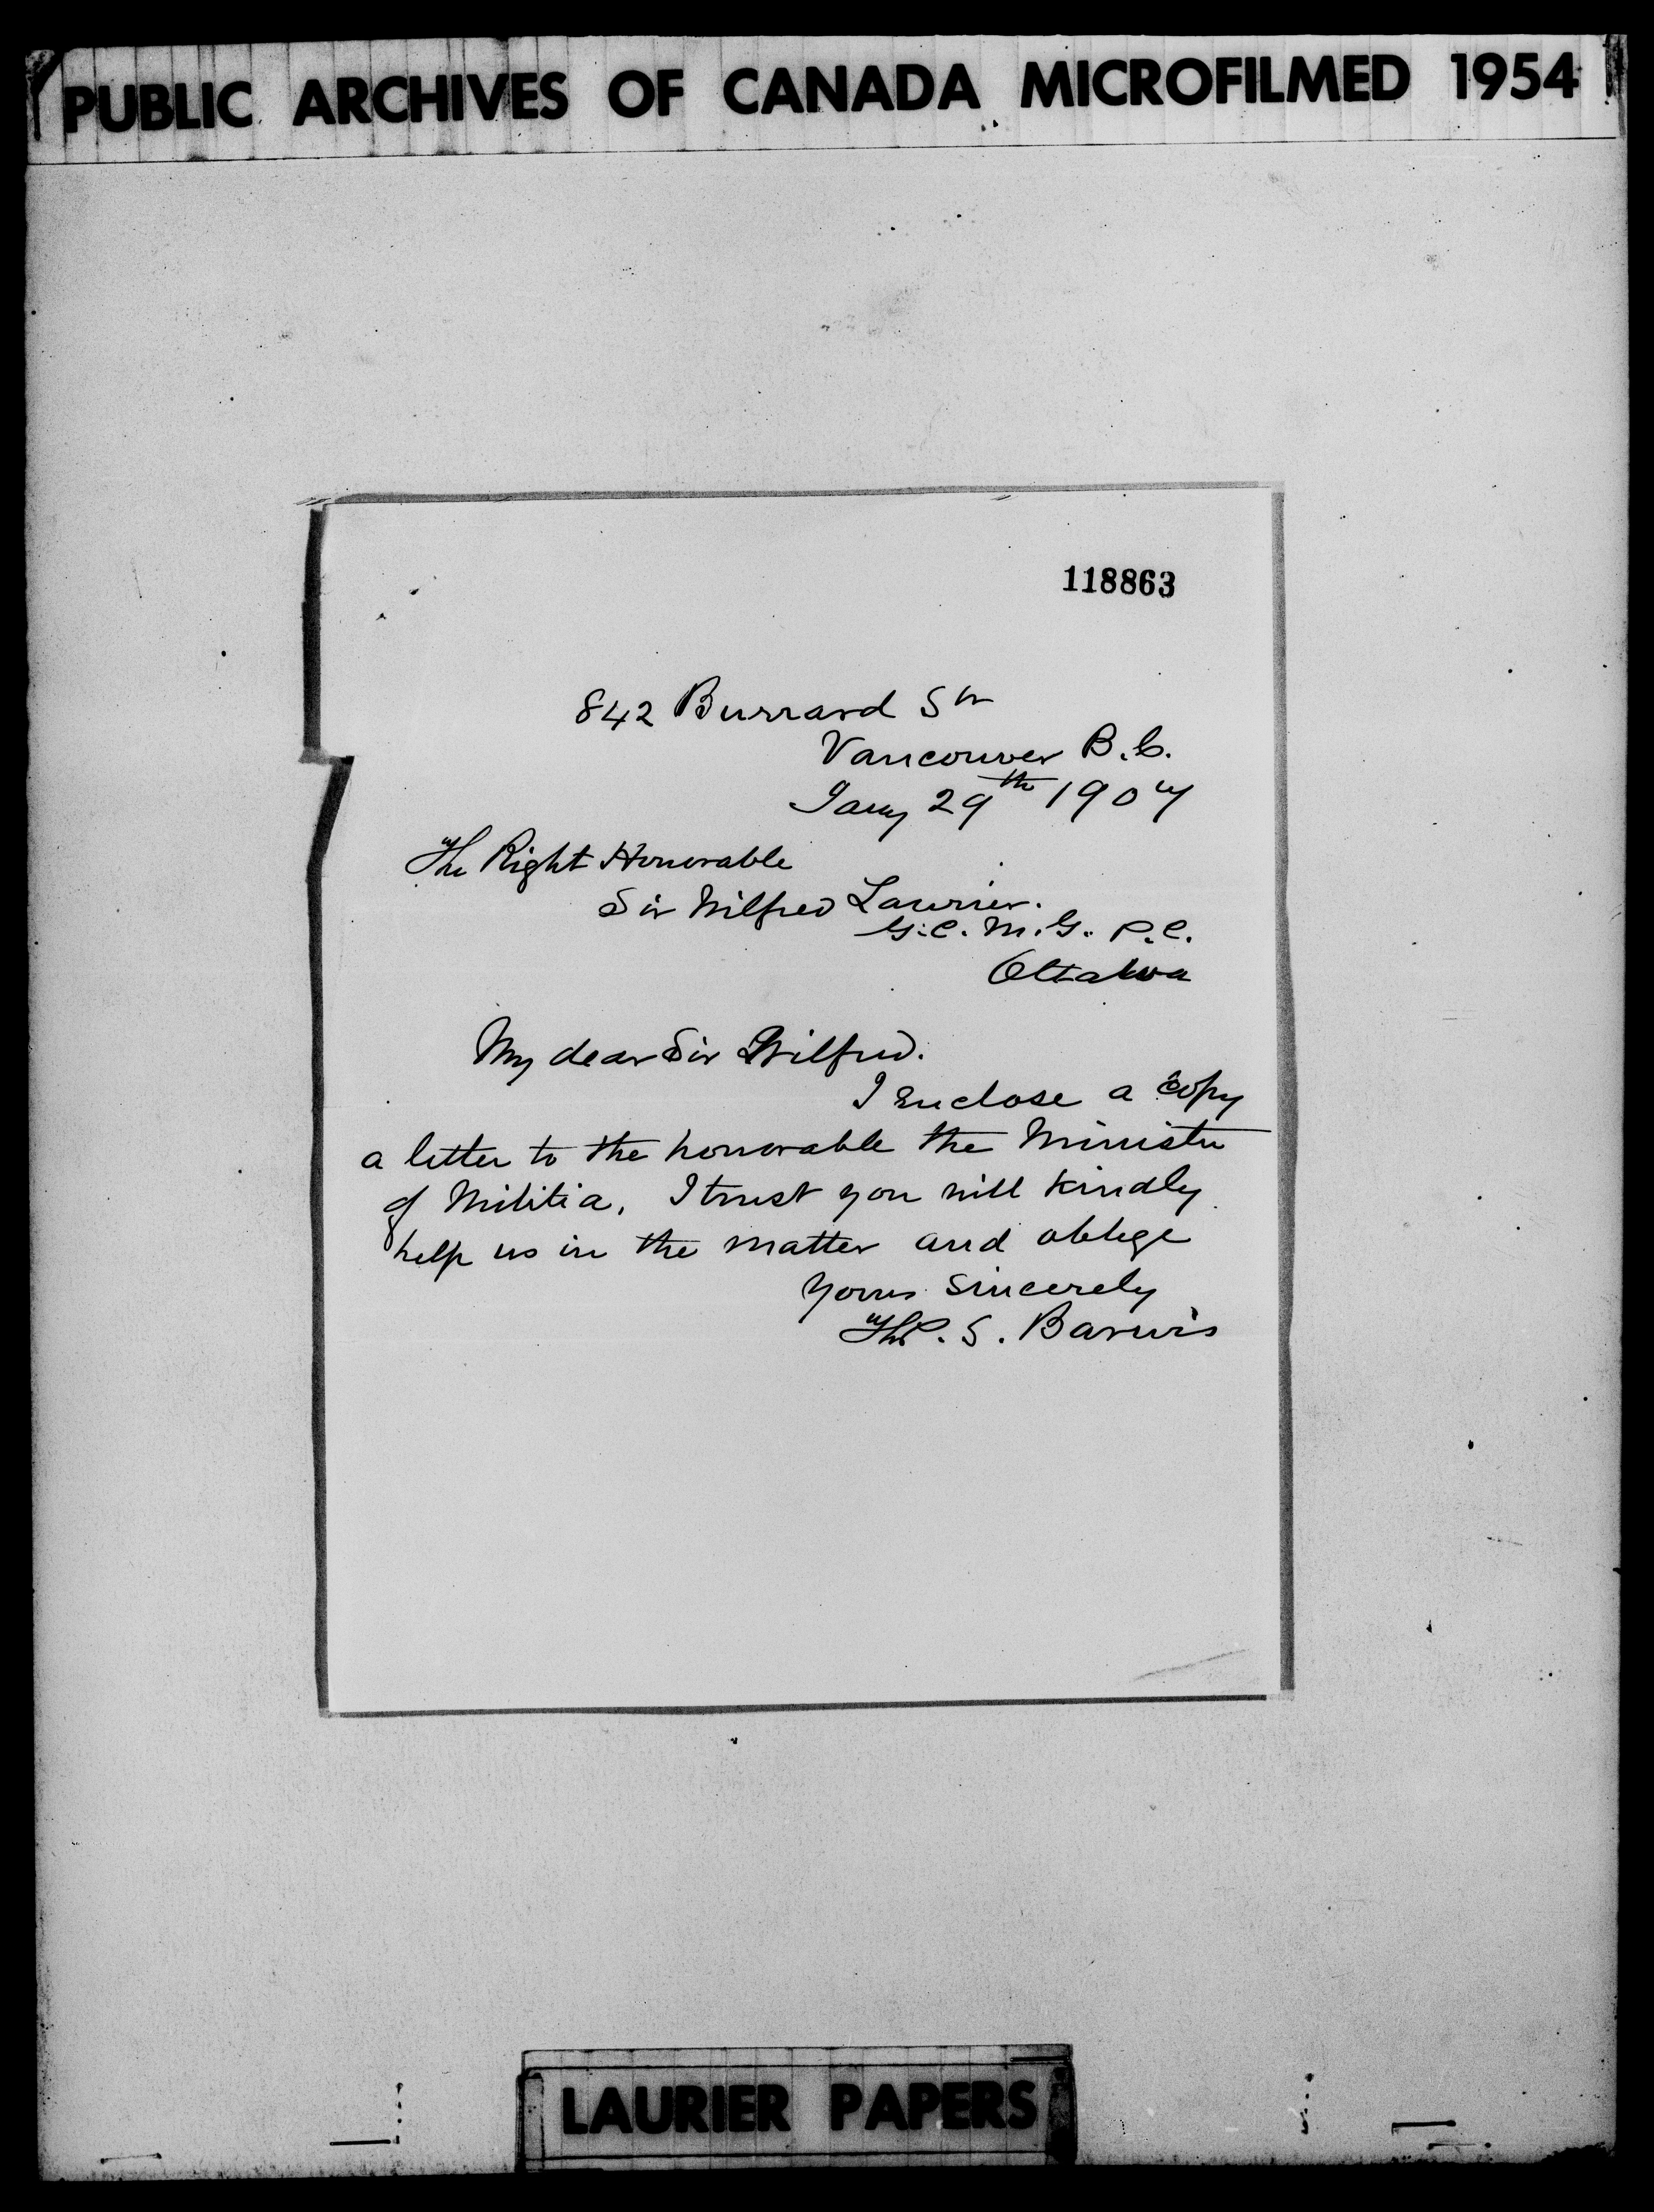 PUBLIC ARCHIVES OF CANADA MICROFILMED 1954
118863
842 Burrard St
Vancouver B.C.
Jany 29th 1907
The Right Honorable
Sir Wilfred Laurier.
G.C.M.G. P.C.
Ottawa
My dear Sir Wilfred.
I enclose a copy
a letter to the honorable the Minister
of Militia, I trust you will kindly
help us in the matter and oblige
Yours sincerely
S. Barwis
LAURIER PAPERS